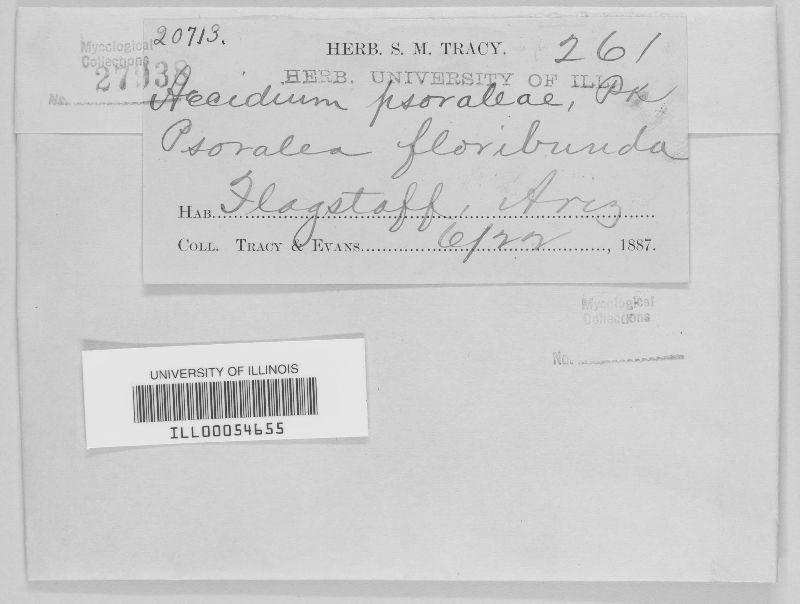 20713.
HERB. S. M. TRACY. 261
Mycological
Collections
HERB. UNIVERSITY OF ILL.
No. 27938
Aecidium psoraleae, Pk
Psoralea floribunda
HAB. Flagstaff, Ariz
COLL. TRACY & EVANS. 6/22, 1887.
Mycological
Collections
No.
UNIVERSITY OF ILLINOIS
ILL00054655